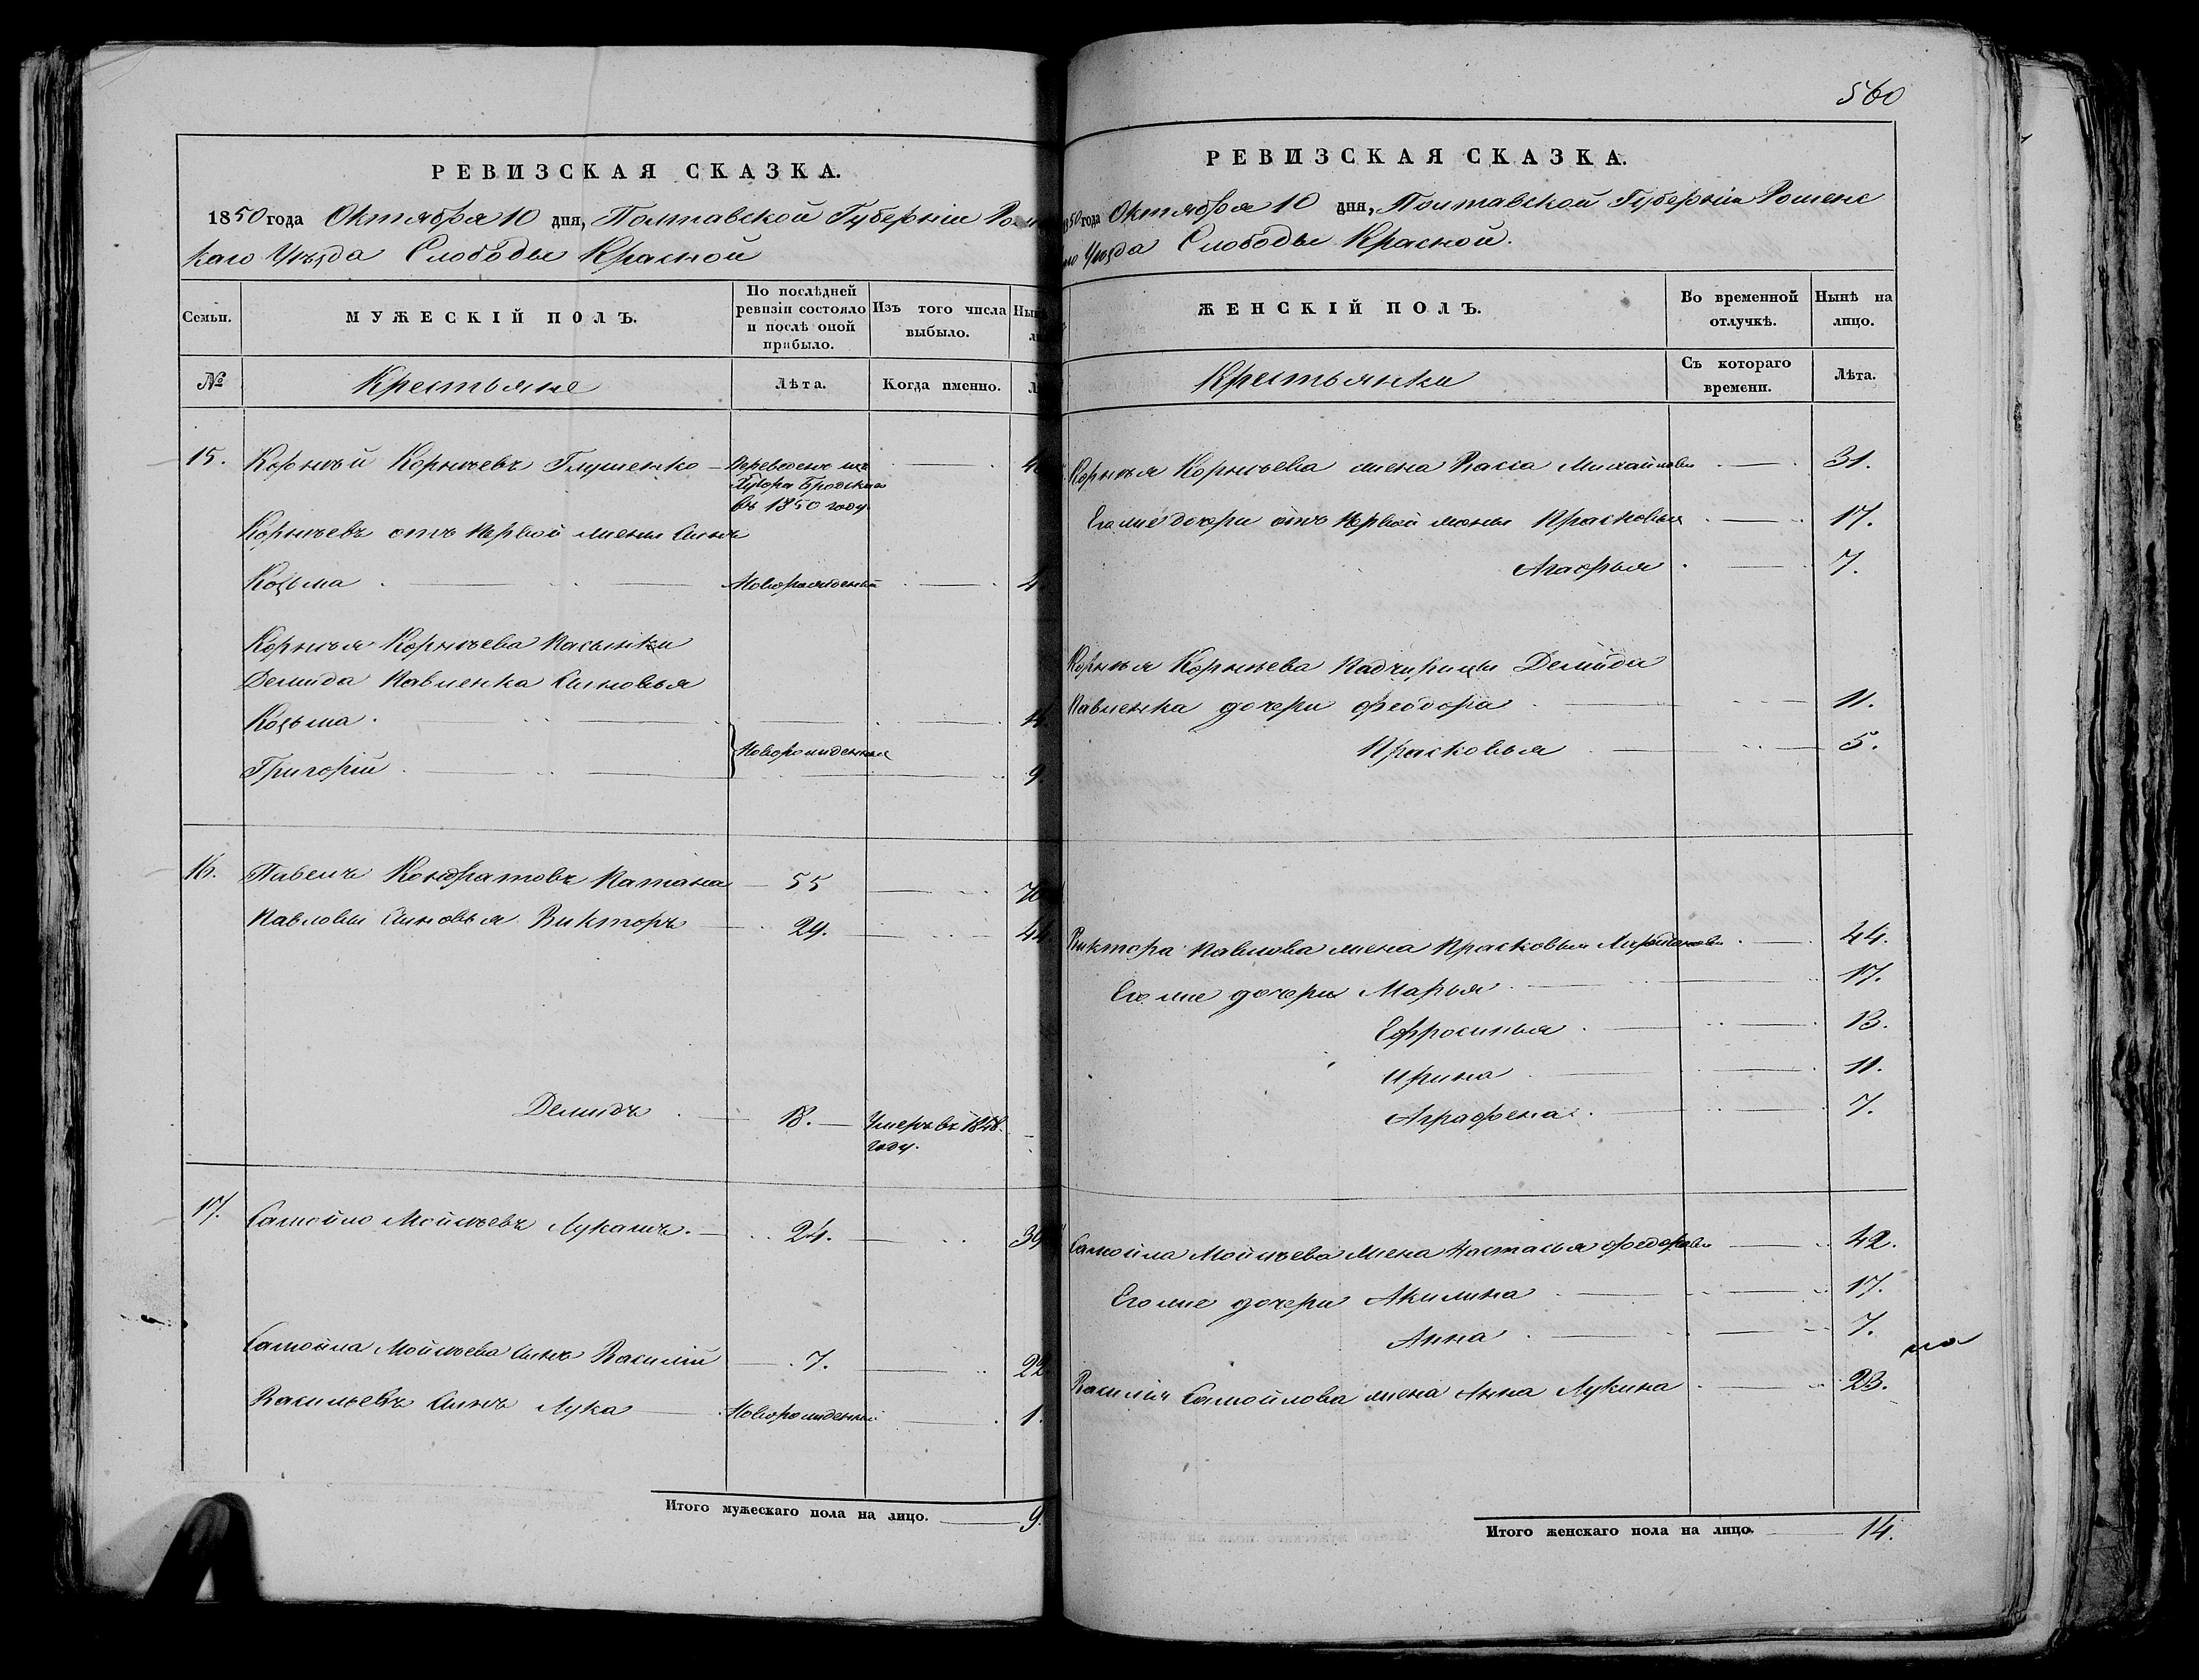 РЕВИЗСКАЯ СКАЗКА.
1850 года Октября 10 дня, Полтавской Губерніи
каго Уѣзда Слободы Красной
Семьи.
МУЖЕСКІЙ ПОЛЪ.
По послѣдней ревизіи состояло и послѣ оной прибыло.
Изъ того числа выбыло.
№
Крестьяне
Лѣта.
Когда именно.
15. Корнѣй Корнѣевъ Глушенко — Переведенъ изъ
Хутора
въ 1850 году
Корнѣевъ отъ первой жены сынъ
Козьма Новорожденный
Корнѣя Корнѣева пасынки
Демида Павленка сыновья
Козьма
Новорожденные
Григорій 9.
16. Павелъ Кондратовъ 55
Павловы сыновья Викторъ 29. 44
Демидъ 18. Умеръ въ 1848.
году.
17. Самойло Мойсѣевъ Лукашъ. 24. 39
Самойла Мойсѣева сынъ Василій 7. 22
Васильевъ сынъ Лука Новорожденный 1.
Итого мужескаго пола на лицо. 9.
560
РЕВИЗСКАЯ СКАЗКА.
1850 года Октября 10 дня, Полтавской Губерніи Роменс
Уѣзда Слободы Красной.
ЖЕНСКІЙ ПОЛЪ.
Во временной отлучкѣ.
Нынѣ на лицо.
Крестьянки
Съ котораго времени.
Лѣта.
Корнѣя Корнѣева жена Васса Михайлова 31.
Его же дочери отъ первой жены Прасковья 17.
Агафья 7.
Корнѣя Корнѣева падчерицы Демида
Павленка дочери Феодора 11.
Прасковья 5.
Виктора Павлова жена Прасковья 44.
Его же дочери Марья 17.
Ефросинья 13.
Ирина 11.
Аграфена 7.
Самойла Мойсѣева жена Настасья Федорова 42.
Его же дочери Акилина 17.
Анна 7.
Василія Самойлова жена Анна Лукина 23.
Итого женскаго пола на лицо. 14.